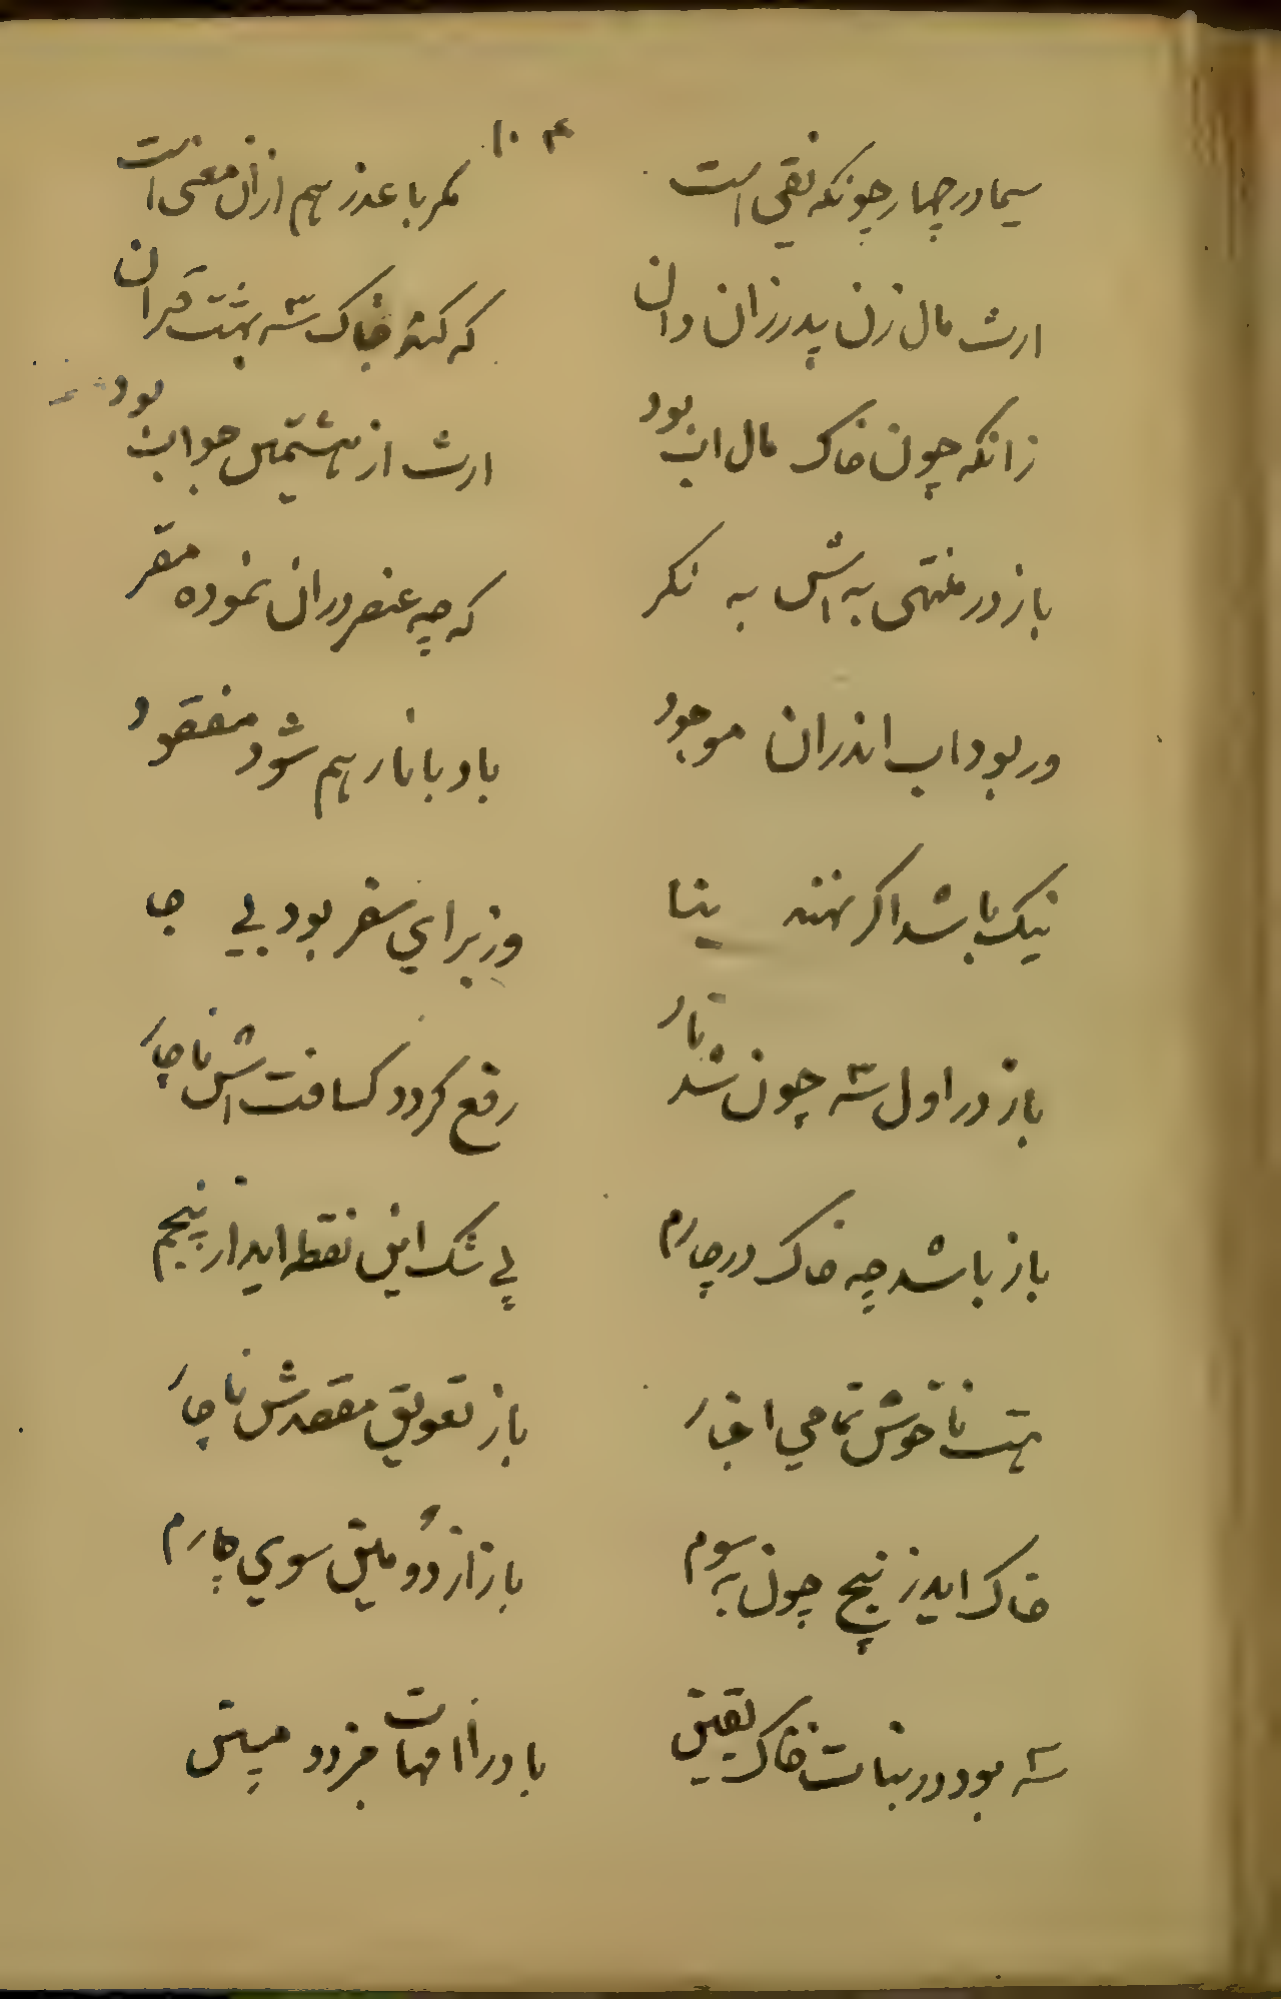 ۱۰۴
سیما در چهار چونکه نقی است
مکر با عذر هم ازان معنی است
ارث مال زن پدر زان دان
که کند خاک سه بهشت قران
زانکه چون خاک مال اب بود
ارث از هشتمین جواب بود
باز در منتهی به اتش به نکر
که چه عنصر دران نموده مقر
ور بود اب اندران موجود
باد با نار هم شود مفقود
نیک باشد اکر نهند بنا
وز برای سفر بود بی جا
باز در اول سه چون شد نار
رفع کردد کسافت اتش ناچار
باز باشد چه خاک در چارم
بی شک این نقطه اید از پنجم
هست ناخوش تمامی اخبار
باز تعویق مقصدش ناچار
خاک اید ز پنج چون به سوم
باز از دومین سوی چارم
سه بود در بنات خاک یقین
باد را امهات فردد مبین